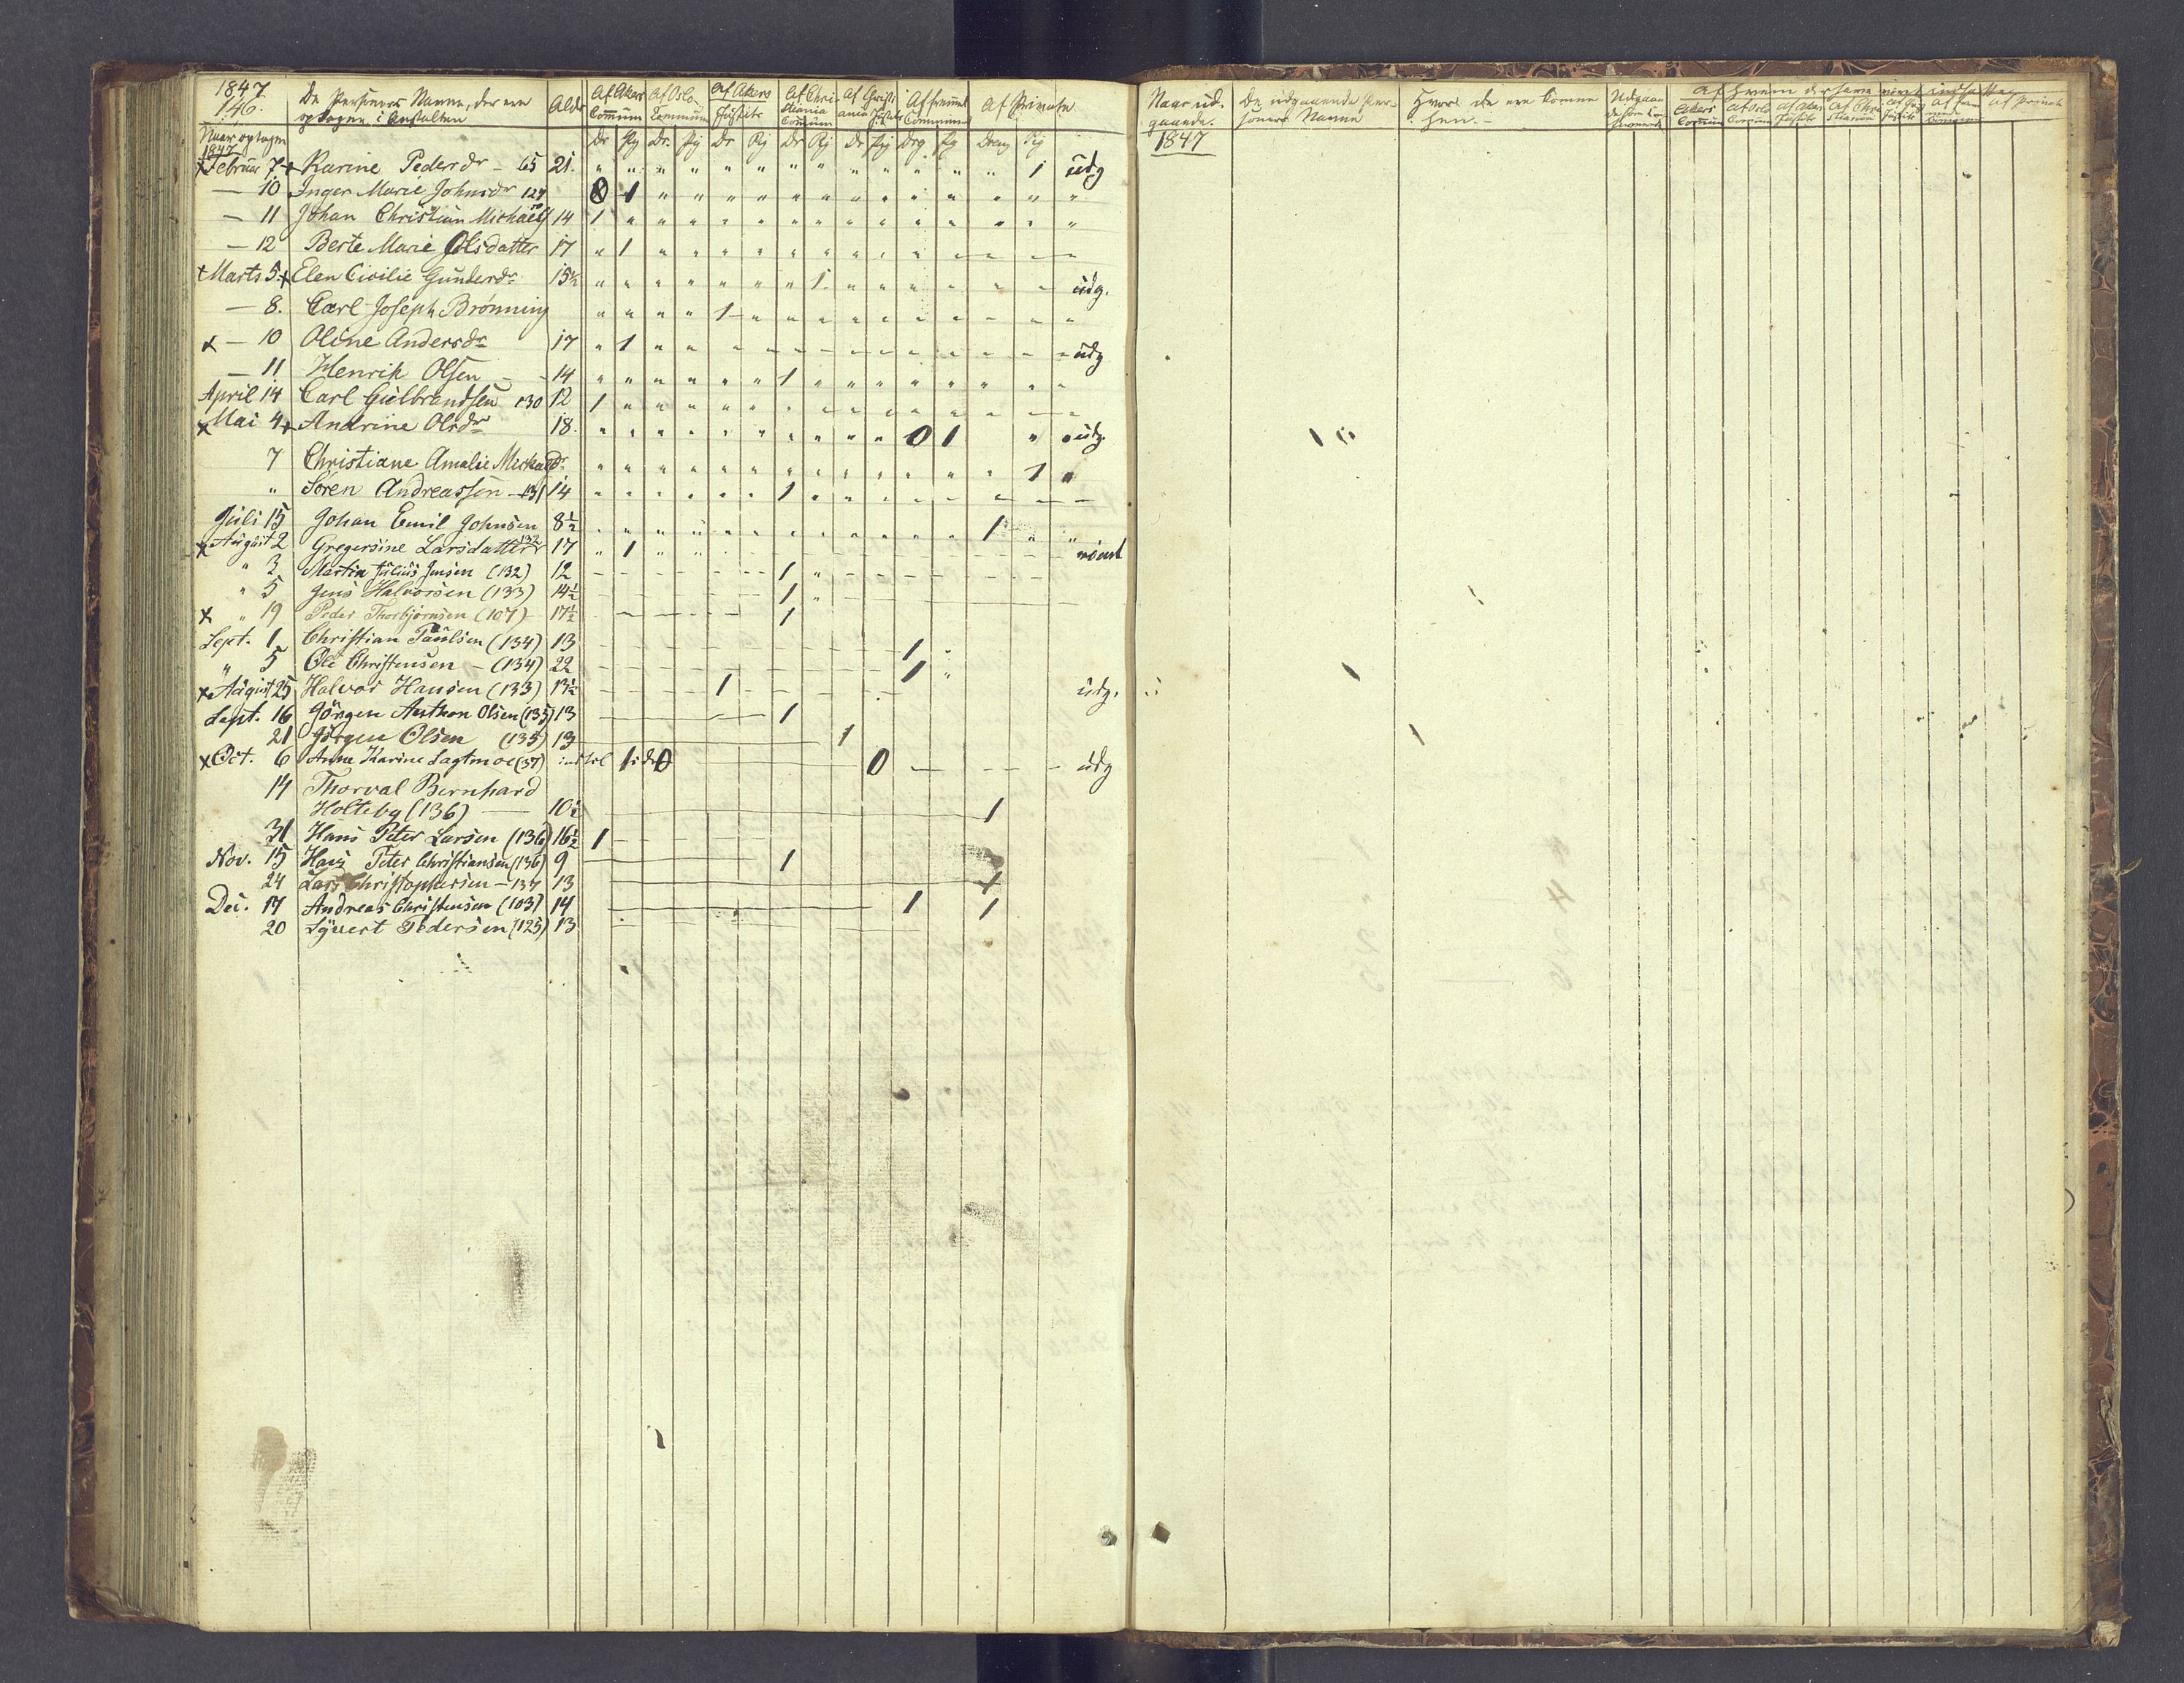 1847.
146.
De Personers Namne, der ere
optagne i Anstalten
Alder
Af Akers Commun
Af Oslo Commun
Af Akers Justits
Af Christiania Commun
Af Christiania Justits
Af fremmed Commune
Af Private
Naar optagne
1847
Dr Pig Dr. Pig Dr Pig Dr Pig Dr Pig Drg Pg Dreng Pig
x Februar 7 + Karine Pedersdr - 65 21. 1 udg
— 10 Inger Marie Johnsdr 127 1
— 11 Johan Christian Michaels 14 1
— 12 Berte Marie Olsdatter 17 1
+ Marts 5 + Elen Civilie Gundersdr 15½ 1 udg.
— 8. Carl Joseph Brønning 1
x — 10 Oline Andersdr 17 1 udg
— 11 Henrik Olsen 14 1
April 14 Carl Gulbrandsen 130 12 1
x Mai 4 + Andrine Olsdr 18. 0 1 udg.
7 Christiane Amalie 1
" Søren Andreassen - 131 14 1
Juli 15 Johan Emil Johnsen 8½ 1
x August 2 Gregersine Larsdatter 132 17 1
" 3 Martin Julius Jensen (132) 12 1
" 5 Jens Halvorsen (133) 14½ 1
x " 19 Peder Thorbjørnsen (107) 17½ 1
Sept. 1 Christian Paulsen (134) 13 1
" 5 Ole Christensen - (134) 22 1
x August 25 Halvor Hansen (133) 13½ 1 udg.
Sept. 16 Jörgen Anthon Olsen (135) 13 1
21 Jörgen Olsen (135) 13 1
x Oct. 6 Anne Karine Lagtmoe (37) 1 0 0 udg
14 Thorval Bernhard
Holteby (136) — 10½ 1
31 Hans Peter Larsen (136) 16½ 1
Nov. 15 Hans Peter Christiansen (136) 9 1
24 Lars Christophersen - 137 13 1
Dec. 17 Andreas Christensen (103) 14 1 1
20 Syvert Pedersen (125) 13
Naar udgaaende.
1847
De udgaaende Personers Namne
Hvor de ere komne
hen. -
Af hvem de have været indsatte
Akers Commun
Af Oslo Commun
Af Akers Justits
Af Christiania
Af Private